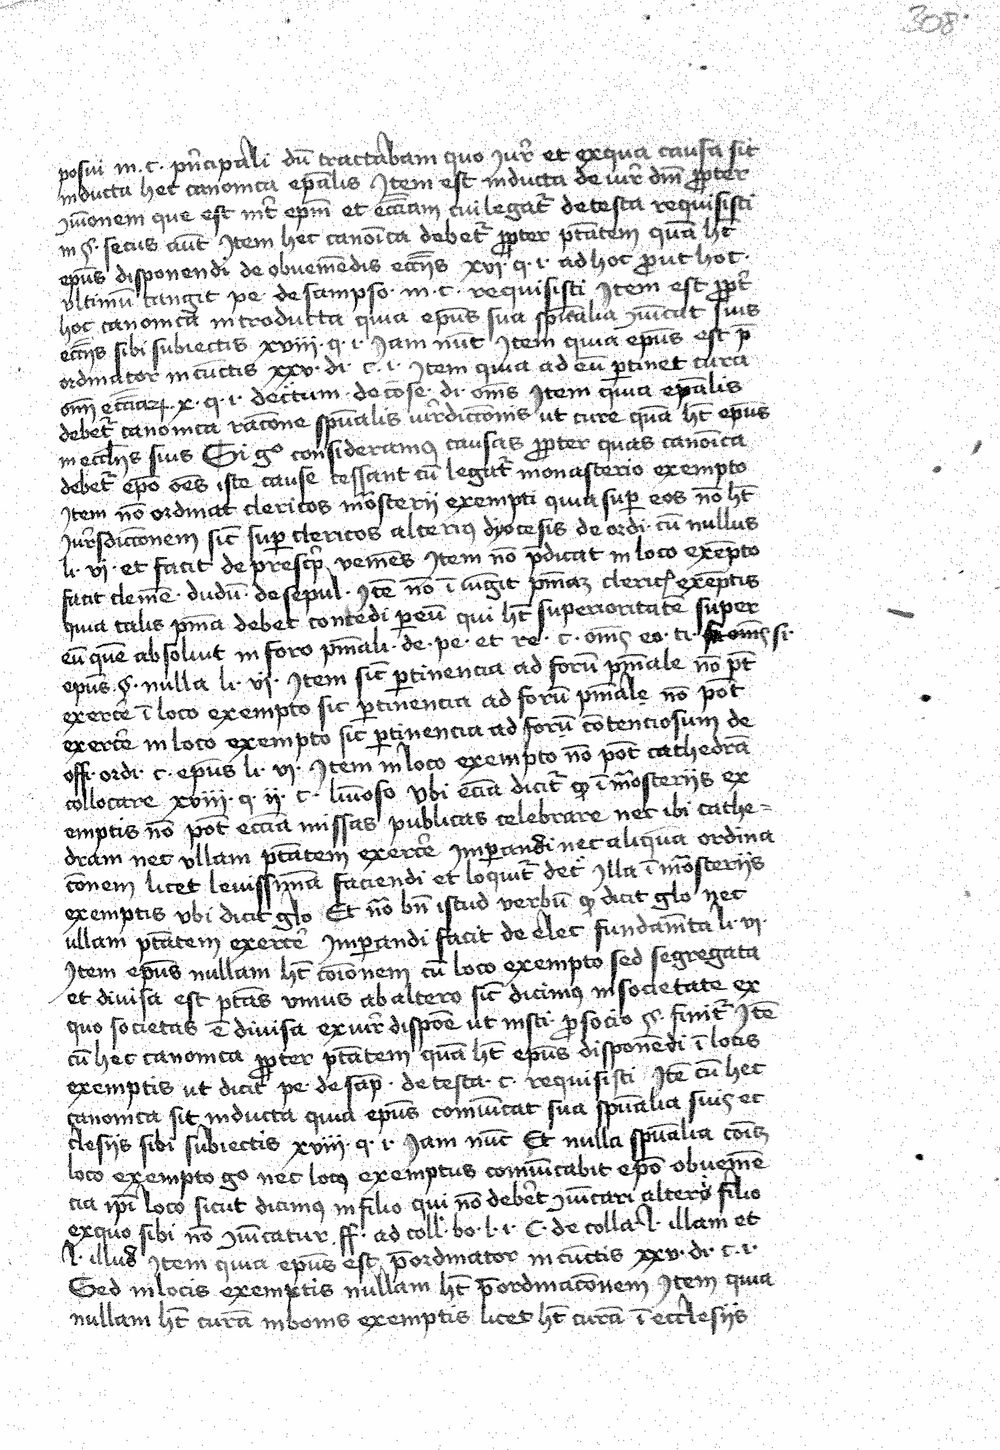 308.
posui in .c. pn̄cipali dū tractabam quo iur̄ et ex qua causa sit
inducta hec canonica ep̄alis Item est inducta de iur̄ diuī propter
vnionem que est int̄ ep̄m et ecc̄iam cui legat̄ de testa requisisti
in §. secus aut̄ Item hec canoīca debet̄ propter ptātem quā ht̄
ep̄us disponendi de obuenīedis ecc̄iis xvi. q. i. ad hoc prout hoc.
vltimū tangit pe. de sampso. in .c. requisisti Item est propt̄
hoc canonica introducta quia ep̄us sua sp̄ualia cōicat suis
ecc̄iis sibi subiectis xviii. q. i. Iam nūc Item quia ep̄us est p̄
ordinator in cunctis xxv. di. c. i. Item quia ad eū ptinet cura
om̄i ecc̄iaꝝ .x. q. i. decitum. de cōse. di. om̄s Item quia ep̄alis
debet̄ canonica racōne sp̄ualis iur̄dictionis vt cure quā ht̄ ep̄us
in eccl̄iis suis Si gͦ consideramꝰ causas propter quas canoīca
debet̄ ep̄o oēs iste cause cessant cū legat̄ monasterio exempto
Item nō ordinat clericos mōsterii exempti quia sup̄ eos nō ht̄
iur̄sdictionem sic̄ sup̄ clericos alteriꝰ dyocesis de ordi. cū nullus
li. vi. et facit de prescrip̄. veniēs Item nō p̄dicat in loco exēpto
facit clemē. dudū. de sepul. Itē nō īiungit pn̄iaꝫ cleric̄ exēptis
quia talis pn̄ia debet concedi p̄ eū qui ht̄ superioritatē super
eū quē absoluit in foro pn̄iali. de. pe. et re. c. om̄is eo. ti. om̄is si.
ep̄us .§. nulla li. vi. Item sic̄ p̄tinencia ad forū pn̄iale nō pt̄
exercē̄ ī loco exempto sic p̄tinencia ad forū pn̄iale nō pot̄
exercē̄ in loco exempto sic̄ p̄tinencia ad forū cōtenciosum de
offi. ordi. c. ep̄us li. vi. Item in loco exempto nō pot̄ cathedrā
collocare xviii. q. ii. c. luīnoso vbi ecc̄ia dicit̄ qͥ ī mōsteriis ex
emptis nō pot̄ ecc̄ia missas publicas celebrare nec ibi cathe=
dram nec vllam ptātem exercē̄ Imp̄andi nec aliquā ordina
cōnem licet leuissimā faciendi et loquit̄ dec̄ Illa ī mōsteriis
exemptis vbi dicit glo Et nō bn̄ istud verbū qͥ dicit glo nec
ullam ptātem exercē̄ Imp̄andi facit de elec fundamt̄a li. vi.
Item ep̄us nullam ht̄ cōionem cū loco exempto sed segregata
et diuisa est ptās vnius ab altero sic̄ dicimꝰ in societate ex
quo societas ē diuisa ex iur̄ dispōe vt insti. pro socio §. finit̄ Itē
cū hec canonica propter ptātem quā ht̄ ep̄us disponēdi ī locis
exemptis vt dicit pe. de sap̄. de testa. c. requisisti Itē cū hec
canonica sit inducta quia ep̄us com̄icat sua sp̄ualia suis ec
clesiis sibi subiectis xviii. q. i. Iam nūc Et nulla sp̄ualia cōicꝫ
loco exempto gͦ nec locꝰ exemptus com̄icabit ep̄o obueniē
cia ipī loco sicut dicimꝰ in filio qui nō debet cōicari alteri filio
ex quo sibi nō cōicatur. ff. ad coll. bo. l. i. C. de colla. l. illam et
l. illud Item quia ep̄us est p̄ordinator in cunctis xxv. di. c. i.
Sed in locis exemptis nullam ht̄ p̄ordinacōnem Item quia
nullam ht̄ curā in bonis exemptis licet ht̄ curā ī ecclesiis